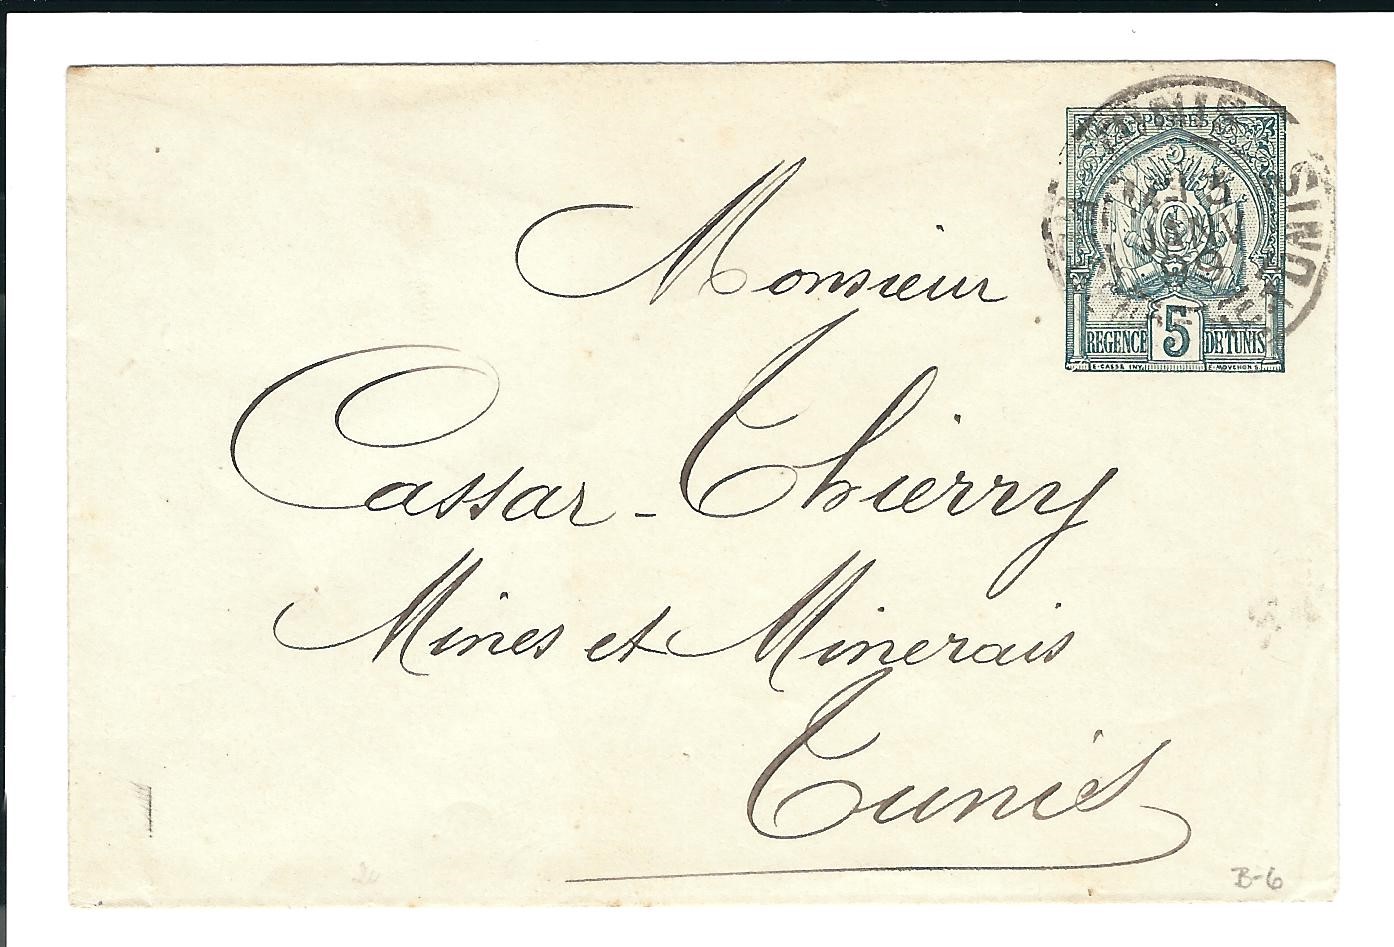 POSTES
TUNIS
5
JANV
REGENCE 5 DE TUNIS
E·CASSE INV. E·MOUCHON S.
Monsieur
Cassar-Thierry
Mines et Minerais
Tunis
B-6